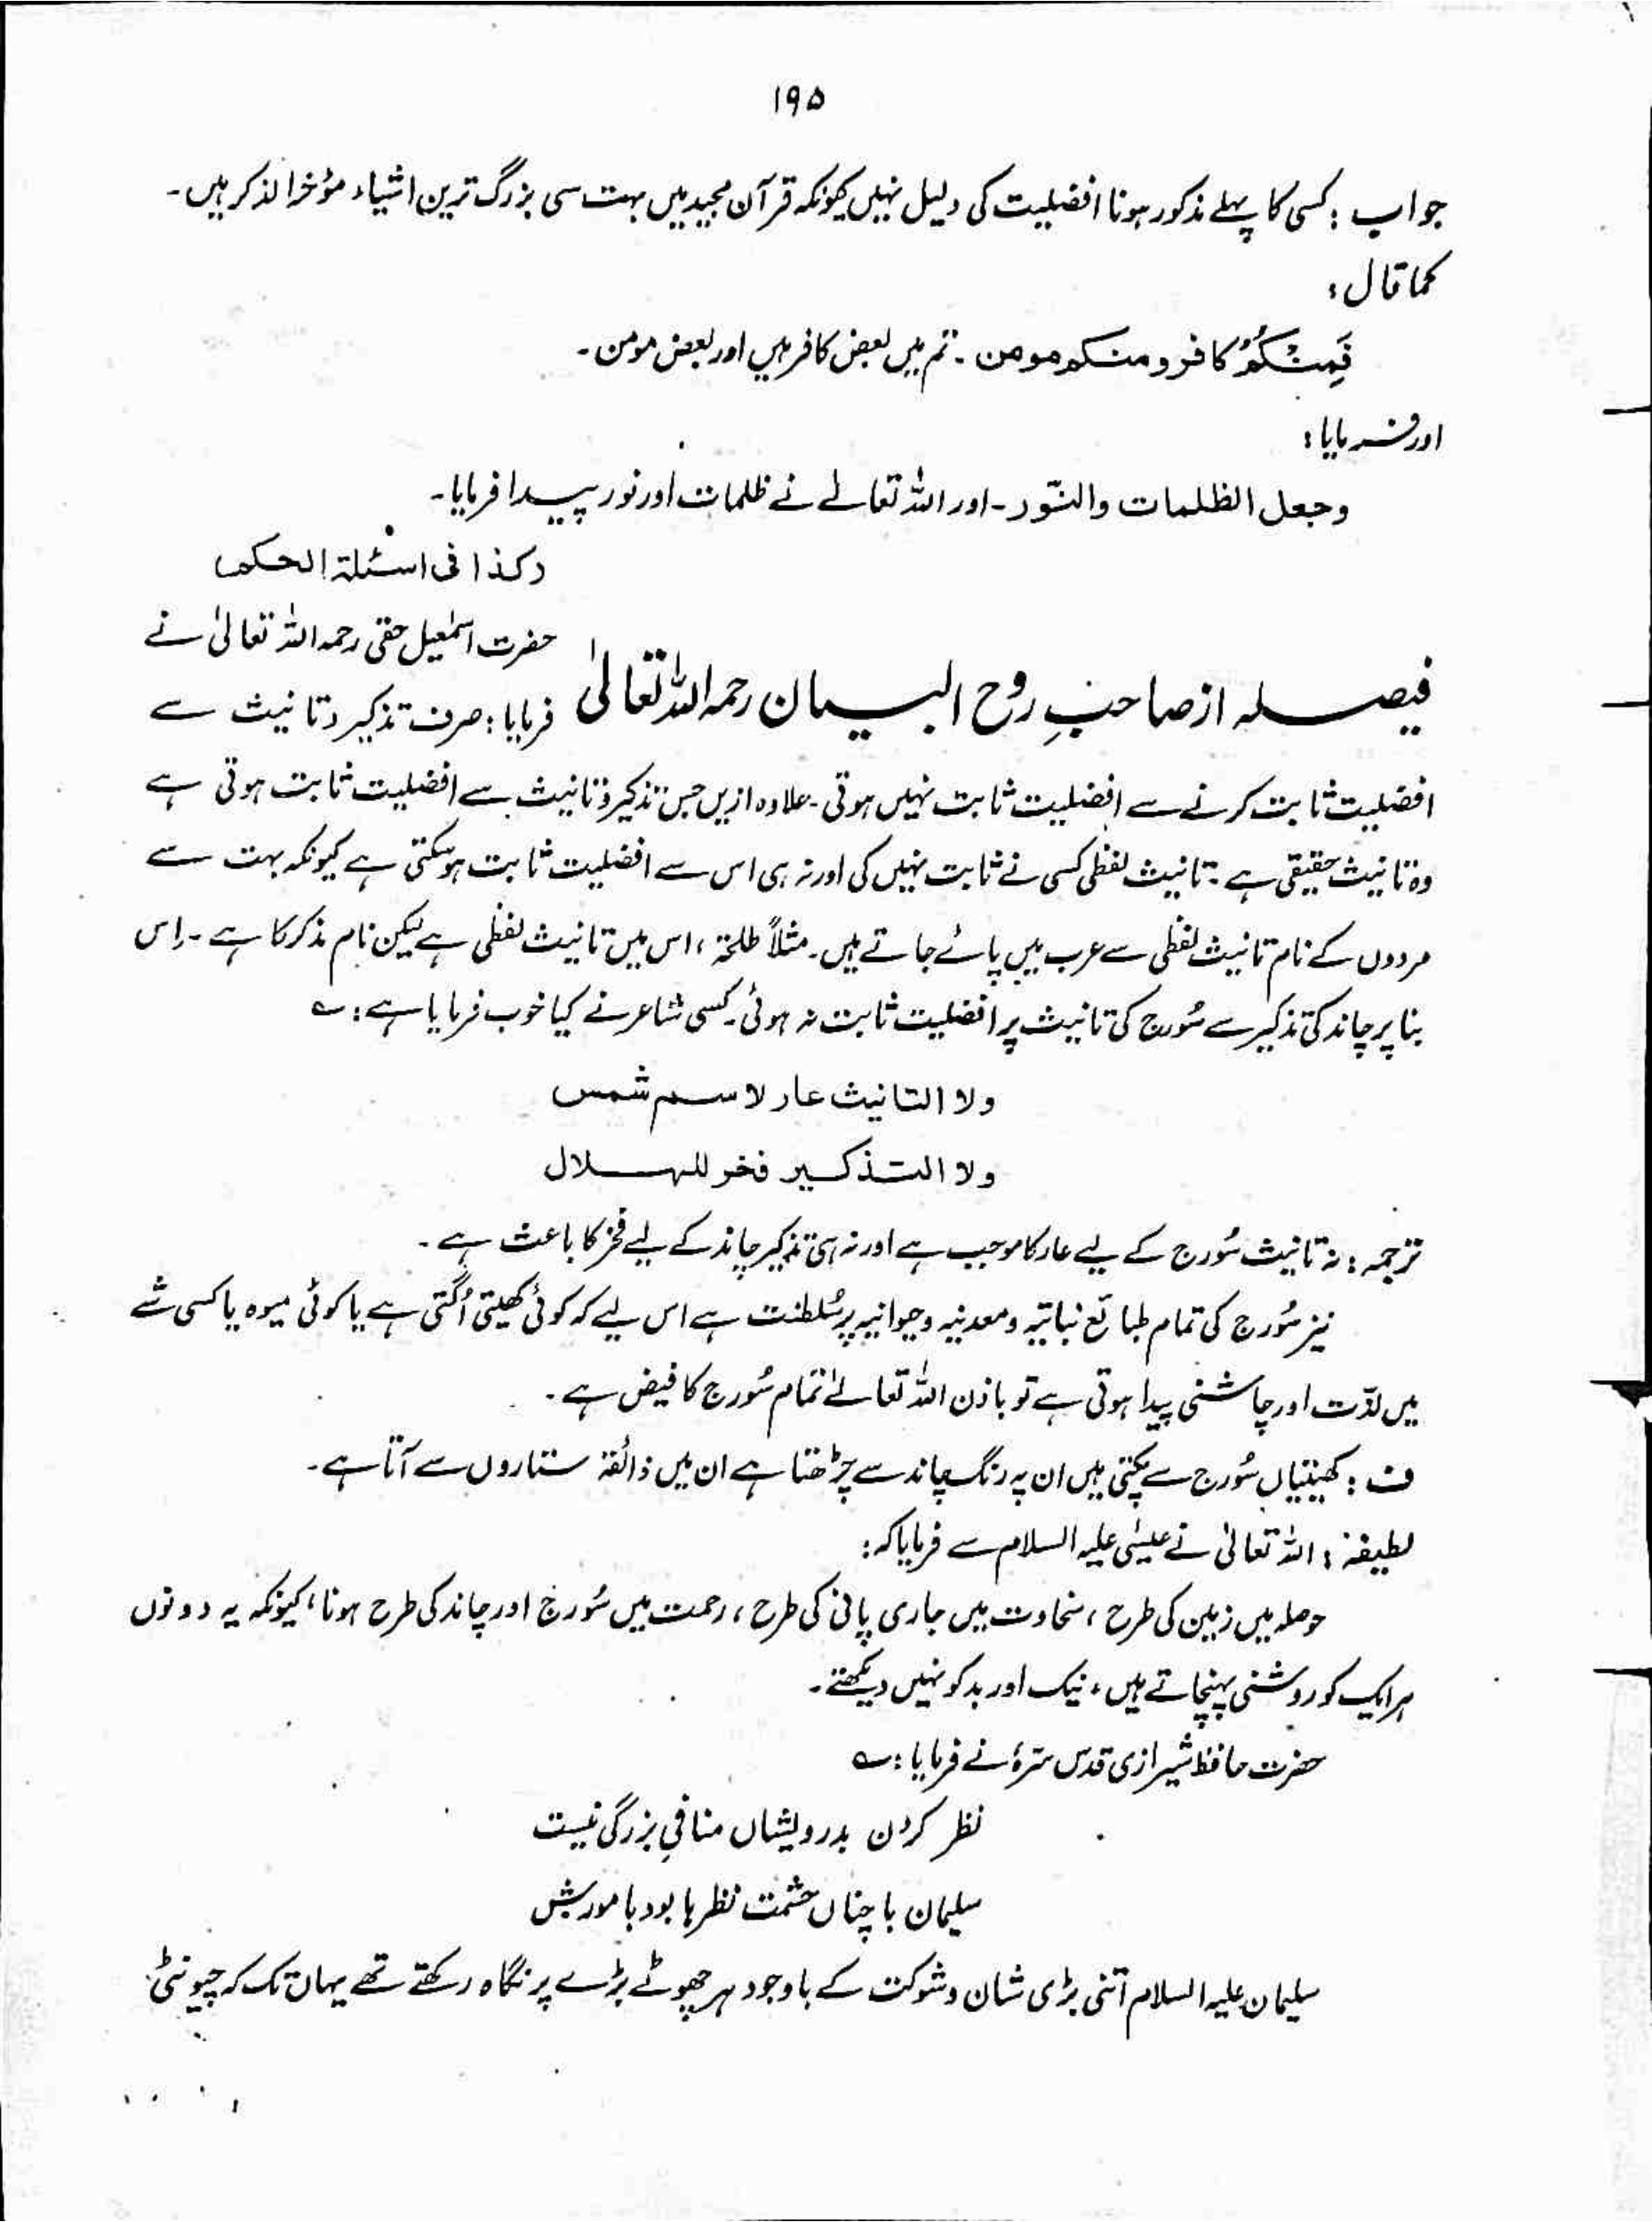 ۱۹۵
جواب : کسی کا پہلے مذکور ہونا افضلیت کی دلیل نہیں کیونکہ قرآن مجید میں بہت سی بزرگ ترین اشیاء مؤخر الذکر ہیں۔
کما قال :
فَمِنْکُمْ کافر و منکم مومن ۔ تم میں بعض کافر ہیں اور بعض مومن ۔
اور فرمایا :
وجعل الظلمات والنّور ۔ اور اللہ تعالےٰ نے ظلمات اور نور پیدا فرمایا ۔
(کذا فی اسئلۃ الحکم)
حضرت اسمٰعیل حقی رحمہ اللہ تعالیٰ نے
فیصلہ از صاحبِ روح البیان رحمہ اللہ تعالیٰ فرمایا : صرف تذکیر و تانیث سے
افضلیت ثابت کرنے سے افضلیت ثابت نہیں ہوتی ۔ علاوہ ازیں جس تذکیر و تانیث سے افضلیت ثابت ہوتی ہے
وہ تانیث حقیقی ہے ۔ تانیث لفظی کسی نے ثابت نہیں کی اور نہ ہی اس سے افضلیت ثابت ہو سکتی ہے کیونکہ بہت سے
مردوں کے نام تانیث لفظی سے عرب میں پائے جاتے ہیں ۔ مثلاً طلحۃ ، اس میں تانیث لفظی ہے لیکن نام مذکر کا ہے ۔ اِس
بنا پر چاند کی تذکیر سے سُورج کی تانیث پر افضلیت ثابت نہ ہوئی ۔ کسی شاعر نے کیا خوب فرمایا ہے : ؎
ولا التانیث عار لاسم شمس
ولا التذکیر فخر للہلال
ترجمہ : نہ تانیث سُورج کے لیے عار کا موجب ہے اور نہ ہی تذکیر چاند کے لیے فخر کا باعث ہے ۔
نیز سُورج کی تمام طبائع نباتیہ و معدنیہ و حیوانیہ پر سُلطنت ہے اس لیے کہ کوئی کھیتی اُگتی ہے یا کوئی میوہ یا کسی شے
میں لذّت اور چاشنی پیدا ہوتی ہے تو باذن اللہ تعالےٰ تمام سُورج کا فیض ہے ۔
ف : کھیتیاں سُورج سے پکتی ہیں ان پہ رنگ چاند سے چڑھتا ہے ان میں ذائقہ ستاروں سے آتا ہے ۔
لطیفہ : اللہ تعالیٰ نے عیسٰی علیہ السلام سے فرمایا کہ :
حوصلہ میں زمین کی طرح ، سخاوت میں جاری پانی کی طرح ، رحمت میں سُورج اور چاند کی طرح ہونا ، کیونکہ یہ دونوں
ہر ایک کو روشنی پہنچاتے ہیں ، نیک اور بد کو نہیں دیکھتے ۔
حضرت حافظ شیرازی قدس سرّہٗ نے فرمایا : ؎
نظر کردن بدرویشاں منافیِ بزرگی نیست
سلیمان با چناں حشمت نظرہا بود با مورش
سلیمان علیہ السلام اتنی بڑی شان و شوکت کے باوجود ہر چھوٹے بڑے پر نگاہ رکھتے تھے یہاں تک کہ چیونٹی